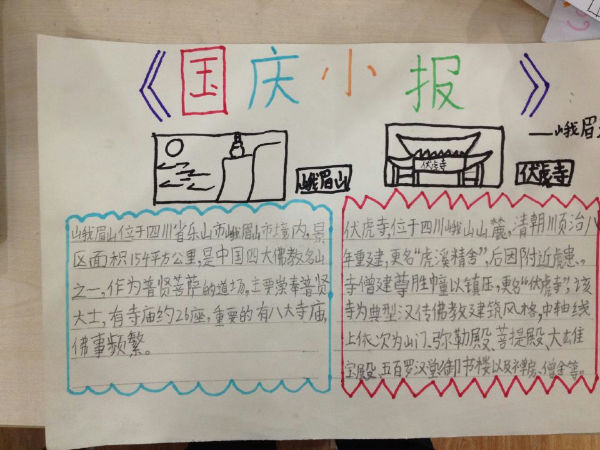 《国庆小报》
——峨眉
峨眉山
伏虎寺
伏虎寺
峨眉山位于四川省乐山市峨眉山市境内,景
区面积154平方公里,是中国四大佛教名山
之一,作为普贤菩萨的道场,主要崇奉普贤
大士,有寺庙约26座,重要的有八大寺庙,
佛事频繁。
伏虎寺,位于四川峨山山麓,清朝顺治八
年重建,更名“虎溪精舍”,后因附近虎患,
寺僧建尊胜幢以镇压,更名“伏虎寺”,该
寺为典型汉传佛教建筑风格,中轴线
上依次为山门、弥勒殿、菩提殿、大雄
宝殿、五百罗汉堂、御书楼以及禅房、僧舍等。